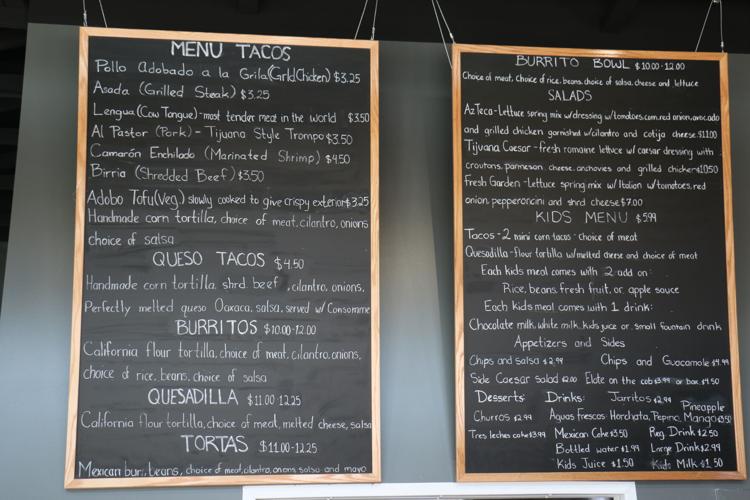 MENU TACOS
Pollo Adobado a la Grilla(Grld Chicken) $3.25
Asada (Grilled Steak) $3.25
Lengua (Cow Tongue)-most tender meat in the world $3.50
Al Pastor (Pork) - Tijuana Style Trompo $3.50
Camarón Enchilado (Marinated Shrimp) $4.50
Birria (Shredded Beef) $3.50
Adobo Tofu(Veg) slowly cooked to give crispy exterior $3.25
Handmade corn tortilla, choice of meat, cilantro, onions
choice of salsa
QUESO TACOS $4.50
Handmade corn tortilla, shrd. beef, cilantro, onions,
Perfectly melted queso Oaxaca, salsa, served w/ Consomme
BURRITOS $10.00-12.00
California flour tortilla, choice of meat, cilantro, onions,
choice of rice, beans, choice of salsa
QUESADILLA $11.00-12.25
California flour tortilla, choice of meat, melted cheese, salsa
TORTAS $11.00-12.25
Mexican bun, beans, choice of meat, cilantro, onions salsa and mayo
BURRITO BOWL $10.00-12.00
Choice of meat, Choice of rice, beans, choice of salsa, cheese and lettuce
SALADS
AzTeca-Lettuce spring mix w/dressing w/tomatoes, corn, red onion, avocado
and grilled chicken garnished w/cilantro and cotija cheese. $11.00
Tijuana Caesar - fresh romaine lettuce w/ caesar dressing with
croutons, parmesan cheese, anchovies and grilled chicken $10.50
Fresh Garden - Lettuce spring mix w/ Italian w/tomatoes, red
onion, pepperoncini and shrd cheese $7.00
KIDS MENU $5.99
Tacos - 2 mini corn tacos - choice of meat
Quesadilla - flour tortilla w/melted cheese and choice of meat
Each kids meal comes with 2 add on:
Rice, beans, fresh fruit, or apple sauce
Each kids meal comes with 1 drink:
Chocolate milk, white milk, kids juice or small fountain drink
Appetizers and Sides
Chips and salsa $2.99 Chips and Guacamole $4.99
Side Caesar Salad $2.00 Elote on the cob $3.99 or box $4.50
Desserts: Drinks: Jarritos $2.99
Churros $2.99 Aguas Frescas: Horchata, Pepino, Mango, Pineapple $3.50
Tres leches cake $3.99 Mexican Coke $3.50 Reg. Drink $2.50
Bottled water $1.99 Large Drink $2.99
Kids Juice $1.50 Kids Milk $1.50